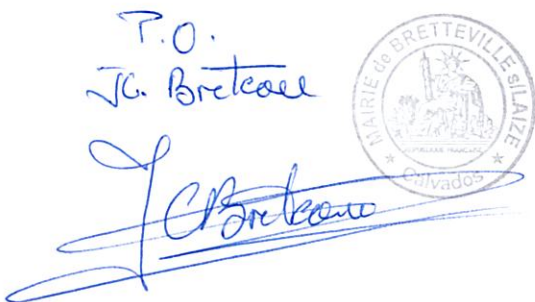 P.O.
JC. Breteau
MAIRIE de BRETTEVILLE S/LAIZE
RÉPUBLIQUE FRANÇAISE
★ Calvados ★
JCBreteau